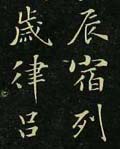 辰宿列
歲律呂